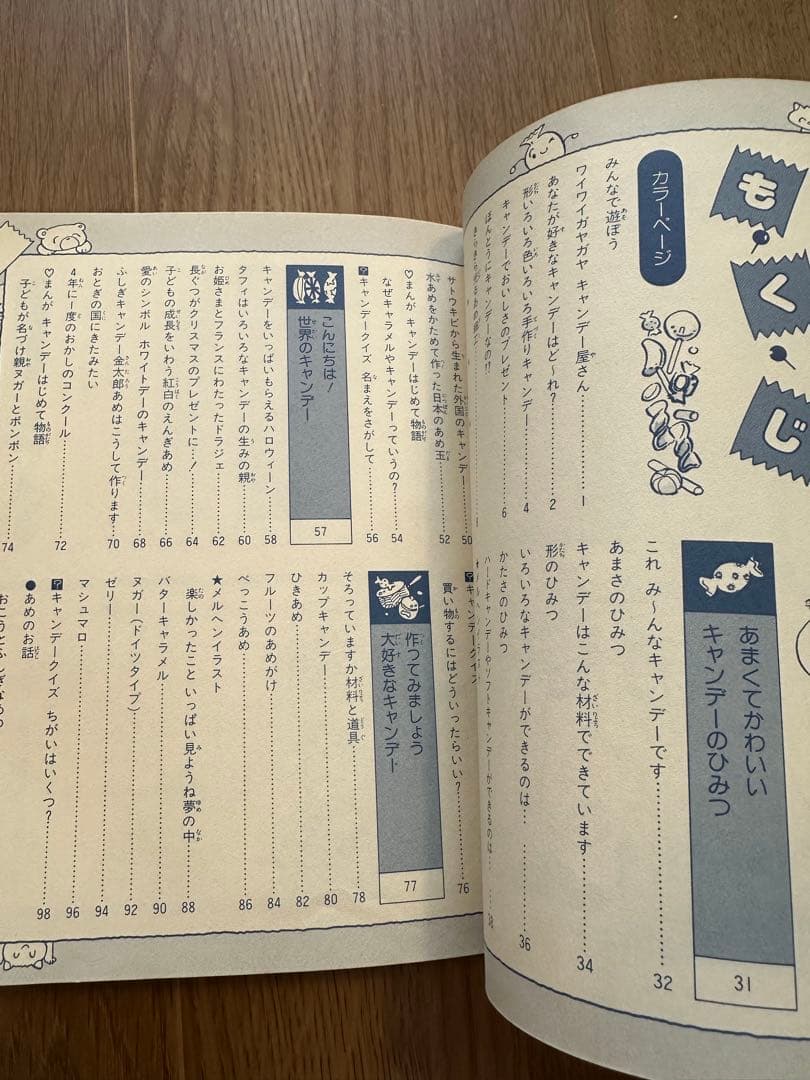 もくじ
カラーページ
みんなで遊ぼう
ワイワイガヤガヤ キャンデー屋さん……1
あなたが好きなキャンデーはど〜れ?……2
形いろいろ色いろいろ手作りキャンデー……4
キャンデーでおいしさのプレゼント……6
ほんとうにキャンデーなの!?
あまくてかわいい
キャンデーのひみつ
31
これ み〜んなキャンデーです……32
あまさのひみつ
キャンデーはこんな材料でできています……34
形のひみつ
いろいろなキャンデーができるのは……36
かたさのひみつ
ハードキャンデーやソフトキャンデーができるのは……38
サトウキビから生まれた外国のキャンデー……50
水あめをかためて作った日本のあめ玉……52
♡まんが キャンデーはじめて物語
なぜキャラメルやキャンデーっていうの?……54
?キャンデークイズ 名まえをさがして……56
こんにちは!
世界のキャンデー
57
キャンデーをいっぱいもらえるハロウィーン……58
タフィはいろいろなキャンデーの生みの親……60
お姫さまとフランスにわたったドラジェ……62
長ぐつがクリスマスのプレゼントに…!……64
子どもの成長をいわう紅白のえんぎあめ……66
愛のシンボル ホワイトデーのキャンデー……68
ふしぎキャンデー金太郎あめはこうして作ります……70
おとぎの国にきたみたい
4年に1度のおかしのコンクール……72
♡まんが キャンデーはじめて物語
子どもが名づけ親ヌガーとボンボン……74
?キャンデークイズ
買い物するにはどういったらいい?……76
作ってみましょう
大好きなキャンデー
77
そろっていますか材料と道具……78
カップキャンデー……80
ひきあめ……82
フルーツのあめがけ……84
べっこうあめ……86
★メルヘンイラスト
楽しかったこと いっぱい見ようね夢の中……88
バターキャラメル……90
ヌガー(ドイツタイプ)……92
ゼリー……94
マシュマロ……96
?キャンデークイズ ちがいはいくつ?……98
●あめのお話